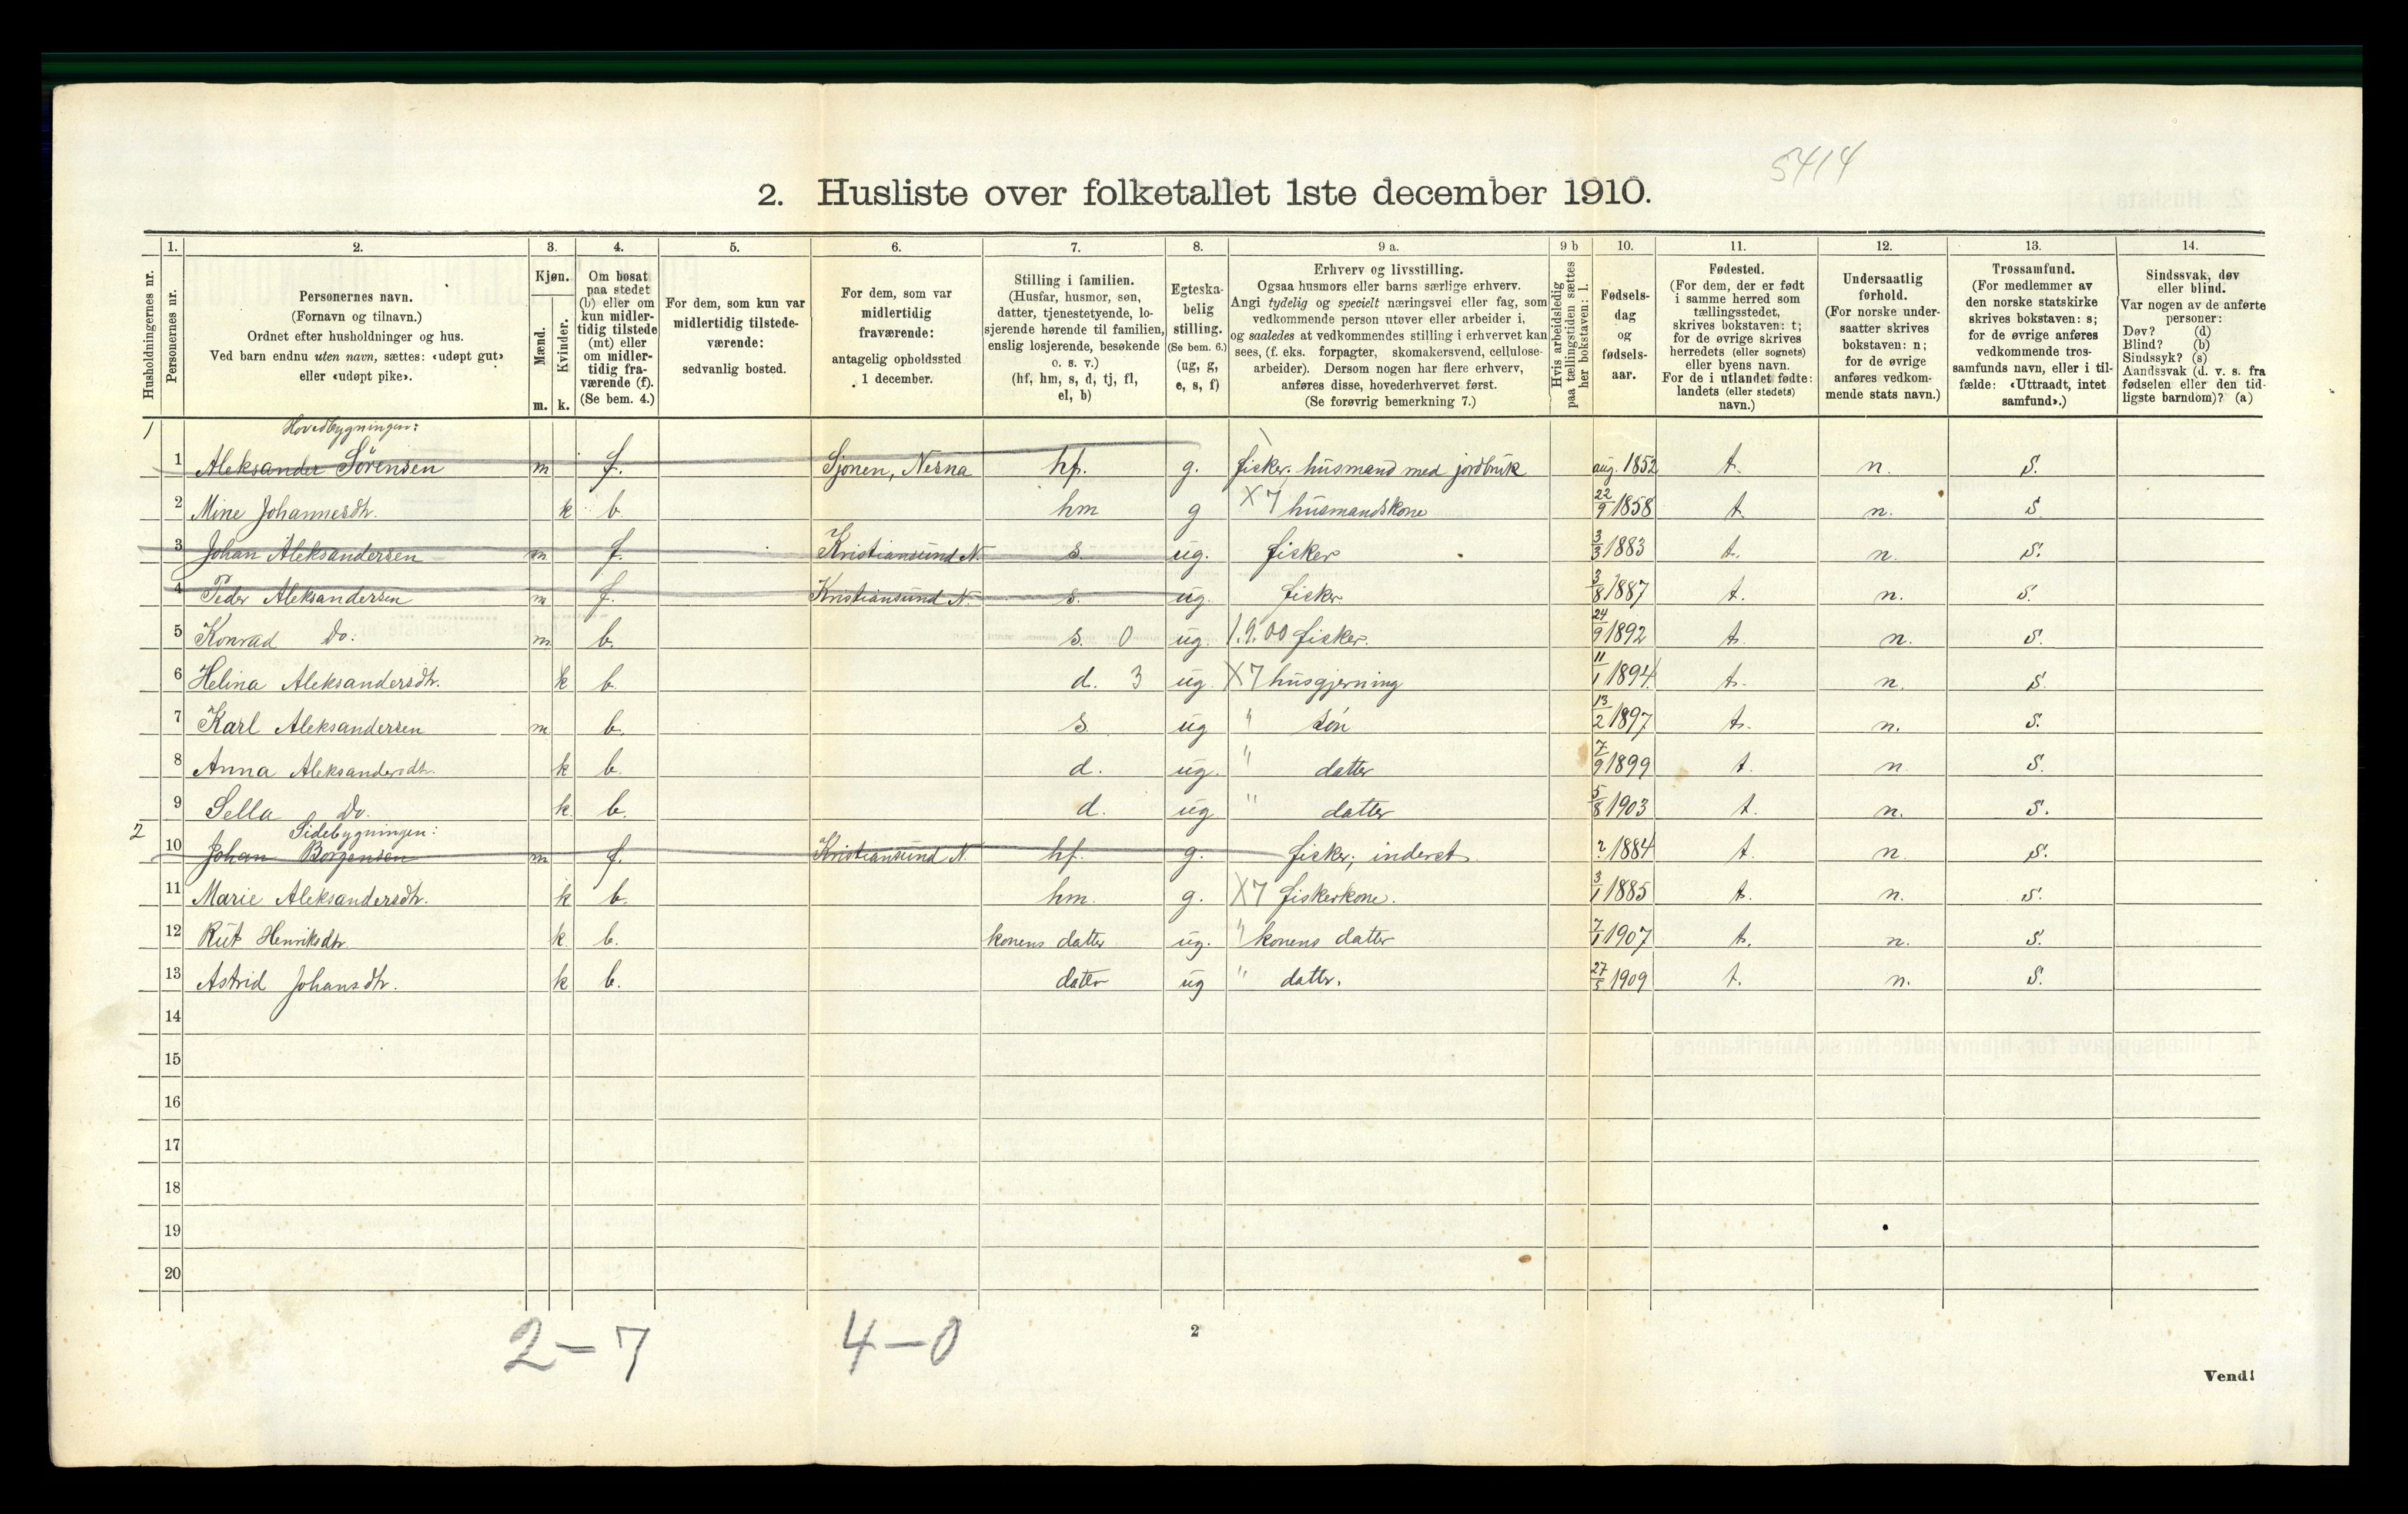 5414
2. Husliste over folketallet 1ste december 1910.
Husholdningernes nr.
1.
Personernes nr.
2.
Personernes navn.
(Fornavn og tilnavn.)
Ordnet efter husholdninger og hus.
Ved barn endnu uten navn, sættes: «udøpt gut»
eller «udøpt pike».
3.
Kjøn.
Mænd.
Kvinder.
m. k.
4.
Om bosat
paa stedet
(b) eller om
kun midler-
tidig tilstede
(mt) eller
om midler-
tidig fra-
værende (f).
(Se bem. 4.)
5.
For dem, som kun var
midlertidig tilstede-
værende:
sedvanlig bosted.
6.
For dem, som var
midlertidig
fraværende:
antagelig opholdssted
1 december.
7.
Stilling i familien.
(Husfar, husmor, søn,
datter, tjenestetyende, lo-
sjerende hørende til familien,
enslig losjerende, besøkende
o. s. v.)
(hf, hm, s, d, tj, fl,
el, b)
8.
Egteska-
belig
stilling.
(Se bem. 6.)
(ug, g,
e, s, f)
9 a.
Erhverv og livsstilling.
Ogsaa husmors eller barns særlige erhverv.
Angi tydelig og specielt næringsvei eller fag, som
vedkommende person utøver eller arbeider i,
og saaledes at vedkommendes stilling i erhvervet kan
sees, (f. eks. forpagter, skomakersvend, cellulose-
arbeider). Dersom nogen har flere erhverv,
anføres disse, hovederhvervet først.
(Se forøvrig bemerkning 7.)
9 b
Hvis arbeidsledig
paa tællingstiden sættes
her bokstaven: l.
10.
Fødsels-
dag
og
fødsels-
aar.
11.
Fødested.
(For dem, der er født
i samme herred som
tællingsstedet,
skrives bokstaven: t;
for de øvrige skrives
herredets (eller sognets)
eller byens navn.
For de i utlandet fødte:
landets (eller stedets)
navn.)
12.
Undersaatlig
forhold.
(For norske under-
saatter skrives
bokstaven: n;
for de øvrige
anføres vedkom-
mende stats navn.)
13.
Trossamfund.
(For medlemmer av
den norske statskirke
skrives bokstaven: s;
for de øvrige anføres
vedkommende tros-
samfunds navn, eller i til-
fælde: «Uttraadt, intet
samfund».)
14.
Sindssvak, døv
eller blind.
Var nogen av de anførte
personer:
Døv? (d)
Blind? (b)
Sindssyk? (s)
Aandssvak (d. v. s. fra
fødselen eller den tid-
ligste barndom)? (a)
1 Hovedbygningen:
1 Aleksander Sörensen m f. Sjonen, Nesna hf. g. fisker, husmand med jordbruk aug. 1852 t. n. s.
2 Mine Johannesdtr. k b. hm g X7 husmandskone 22/9 1858 t. n. s.
3 Johan Aleksandersen m f. Kristiansund N. s. ug. fisker 3/3 1883 t. n. s.
4 Peder Aleksandersen m f. Kristiansund N. s. ug. fisker. 3/8 1887 t. n. s.
5 Konrad Do. m b. s. 0 ug. 1.9.00 fisker. 24/9 1892 t. n. s.
6 Helina Aleksandersdtr. k b. d. 3 ug. X7 husgjerning 11/1 1894. t. n. s.
7 Karl Aleksandersen m b. s. ug " sön 13/2 1897 t. n. s.
8 Anna Aleksandersdtr. k b. d. ug. " datter 7/9 1899 t. n. s.
9 Sella Do. k. b. d. ug " datter 5/8 1903 t. n. s.
2 Sidebygningen:
10 Johan Borgensen m f. Kristiansund N. hf. g. fisker, inderst ? 1884 t. n. s.
11 Marie Aleksandersdtr. k b. hm. g. X7 fiskerkone. 3/1 1885 t. n. s.
12 Rut Henriksdtr. k b. konens datter ug. " konens datter 7/1 1907 t. n. s.
13 Astrid Johansdtr. k b. dater ug " datter. 27/5 1909 t. n. s.
14
15
16
17
18
19
20
2 – 7 4 – 0
2
Vend!